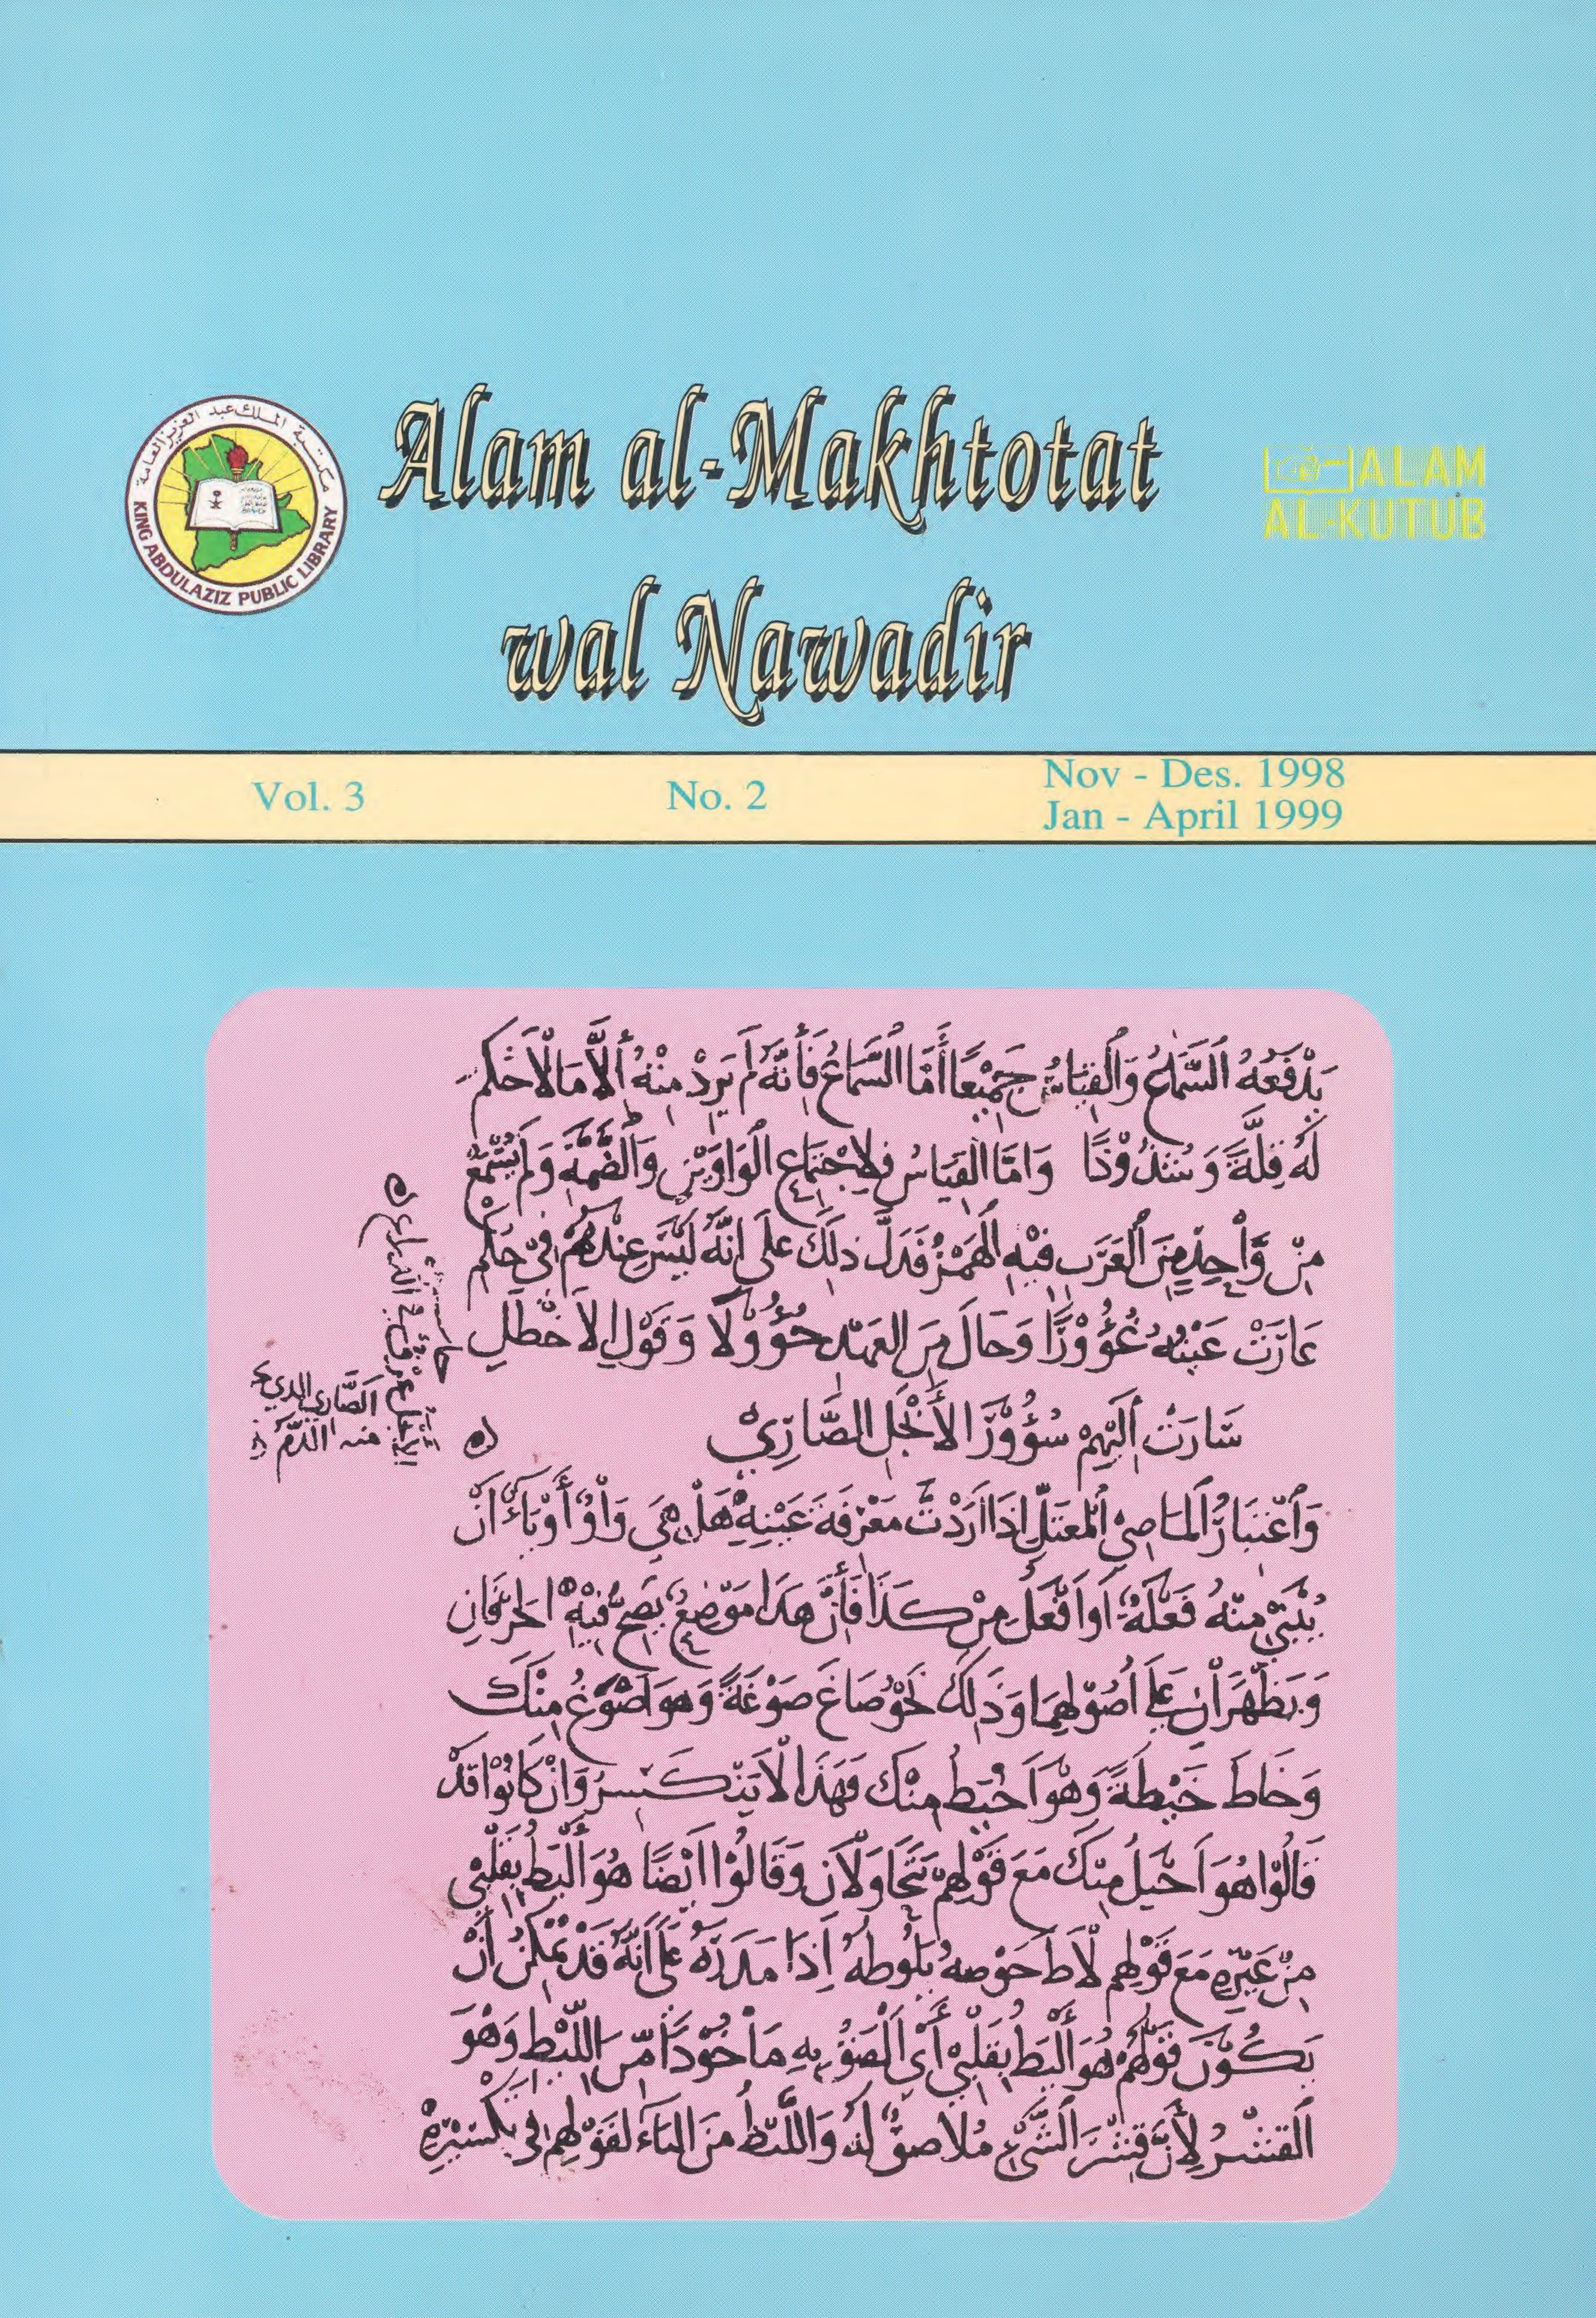 مكتبة الملك عبد العزيز العامة
KING ABDULAZIZ PUBLIC LIBRARY
Alam al-Makhtotat
wal Nawadir
ALAM
AL-KUTUB
Vol. 3
No. 2
Nov - Des. 1998
Jan - April 1999
يَدْفَعُهُ السَّمَاعُ وَالْقِيَاسُ جَمِيْعًا أَمَّا السَّمَاعُ فَأِنَّهُ لَمْ يَرِدْ مِنْهُ أِلَّا مَا لَا حُكْمَ
لَهُ قِلَّةً وَشُذُوْذًا وَامَّا الْقِيَاسُ فَلِاجْتِمَاعِ الْوَاوَيْنِ وَالضَّمَّةِ وَلَمْ يُسْمَعْ
مِنْ وَاحِدٍ مِنَ الْعَرَبِ فِيْهِ الْهَمْزُ فَدَلَّ ذلِكَ عَلَى انَّهُ لَيْسَ عِنْدَهُمْ فِيْ حُكْمِ
عَارَتْ عَيْنُهُ غُؤُوْرًا وَحَالَ مِنَ الْعَهْدِ حُؤُوْلًا وَقَوْلِ الْأخْطَلِ
سَارَتْ أِلَيْهِمْ سُؤُوْرَ الأَبْجَلِ الضَّارِيْ
وَاعْتِبَارُ الْمَاضِيْ الْمُعْتَلِّ اِذَا اَرَدْتَ مَعْرِفَةَ عَيْنِهِ هَلْ هِيَ وَاوٌ أَوْ يَاءٌ اَنْ
يُبْنَيْ مِنْهُ فَعْلَةٌ اَو اَفْعَلُ مِنْ كَذَا فَأِنَّ هَذَا مَوْضِعٌ يَصِحُّ فِيْهِ الْحَرْفَانِ
وَيَظْهَرَانِ عَلَى اُصُوْلِهِمَا وَذَلِكَ نَحْوُ صَاغَ صَوْغَةً وَهوَ اَصْوَغُ مِنْكَ
وَخَاطَ خَيْطَةً وَهْوَ اَخْيَطُ مِنْكَ فَهَذَا لَا يَنْكَسِرُ وَاِنْ كَانُوْا قَدْ
قَالُوْا هُوَ اَحْيَلُ مِنْكَ مَعَ قَوْلِهِمْ يَتَحَاوَلَانِ وَقَالُوْا اَيْضًا هُوَ أَلْيَطُ بِقَلْبِيْ
مِنْ غَيْرِهِ مَعَ قَوْلِهِمْ لَاطَ حَوْضهُ يَلُوْطُهُ اِذَا مَدَرَهُ عَلَى أَنَّهُ قَدْ يُمْكِنُ أَنْ
يَكُوْنَ قَوْلُهُمْ هُوَ أَلْيَطُ بِقَلْبِيْ أَيْ اَلْصَقُ بِهِ مَأْخُوْذًا مِنَ اللِّيْطِ وَهْوَ
الْقِشْرُ لِأَنَّ قِشْرَ الشَّيْءِ مُلَاصِقٌ لَهُ وَاللِّيْطُ مِنَ الْيَاءِ لِقَوْلِهِمْ فِيْ تَكْسِيْرِهِ
الضَّارِي الذي
منه الدَّمُ